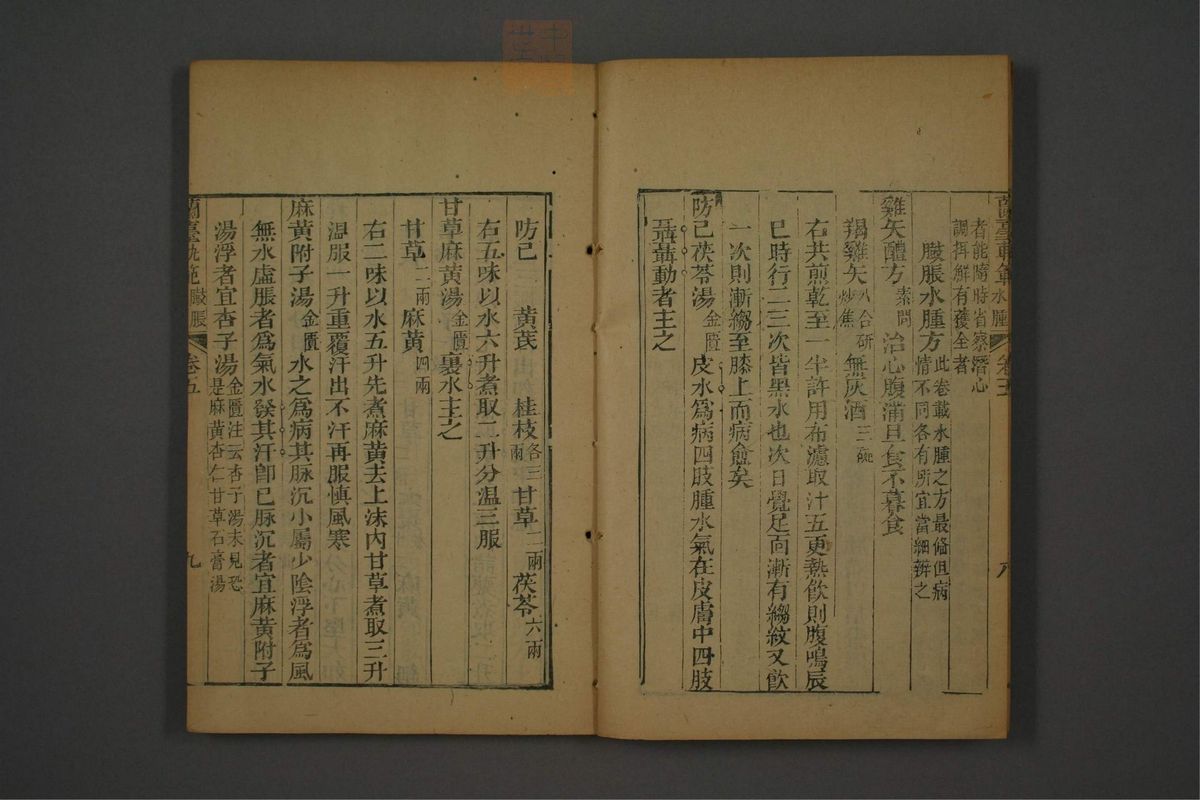 者能隨時省察潛心
調攝鮮有獲全者
臌脹水腫方 此卷載水腫之方最備但病
情不同各有所宜當細辨之
雞矢醴方 素問 治心腹滿旦食不暮食
羯雞矢 八合研炒焦 無灰酒 三碗
右共煎乾至一半許用布濾取汁五更熱飲則腹鳴辰
巳時行二三次皆黑水也次日覺足面漸有縐紋又飲
一次則漸縐至膝上而病愈矣
防己茯苓湯 金匱 皮水爲病四肢腫水氣在皮膚中四肢
聶聶動者主之
水腫 卷五 八
防己 三 黃芪 桂枝 各三兩 甘草 二兩 茯苓 六兩
右五味以水六升煮取二升分溫三服
甘草麻黃湯 金匱 裏水主之
甘草 二兩 麻黃 四兩
右二味以水五升先煮麻黃去上沫內甘草煮取三升
溫服一升重覆汗出不汗再服慎風寒
麻黃附子湯 金匱 水之爲病其脉沉小屬少陰浮者爲風
無水虛脹者爲氣水發其汗卽已脉沉者宜麻黃附子
湯浮者宜杏子湯 金匱注云杏子湯未見恐
是麻黃杏仁甘草石膏湯
蘭臺軌範 臌脹 卷五 九